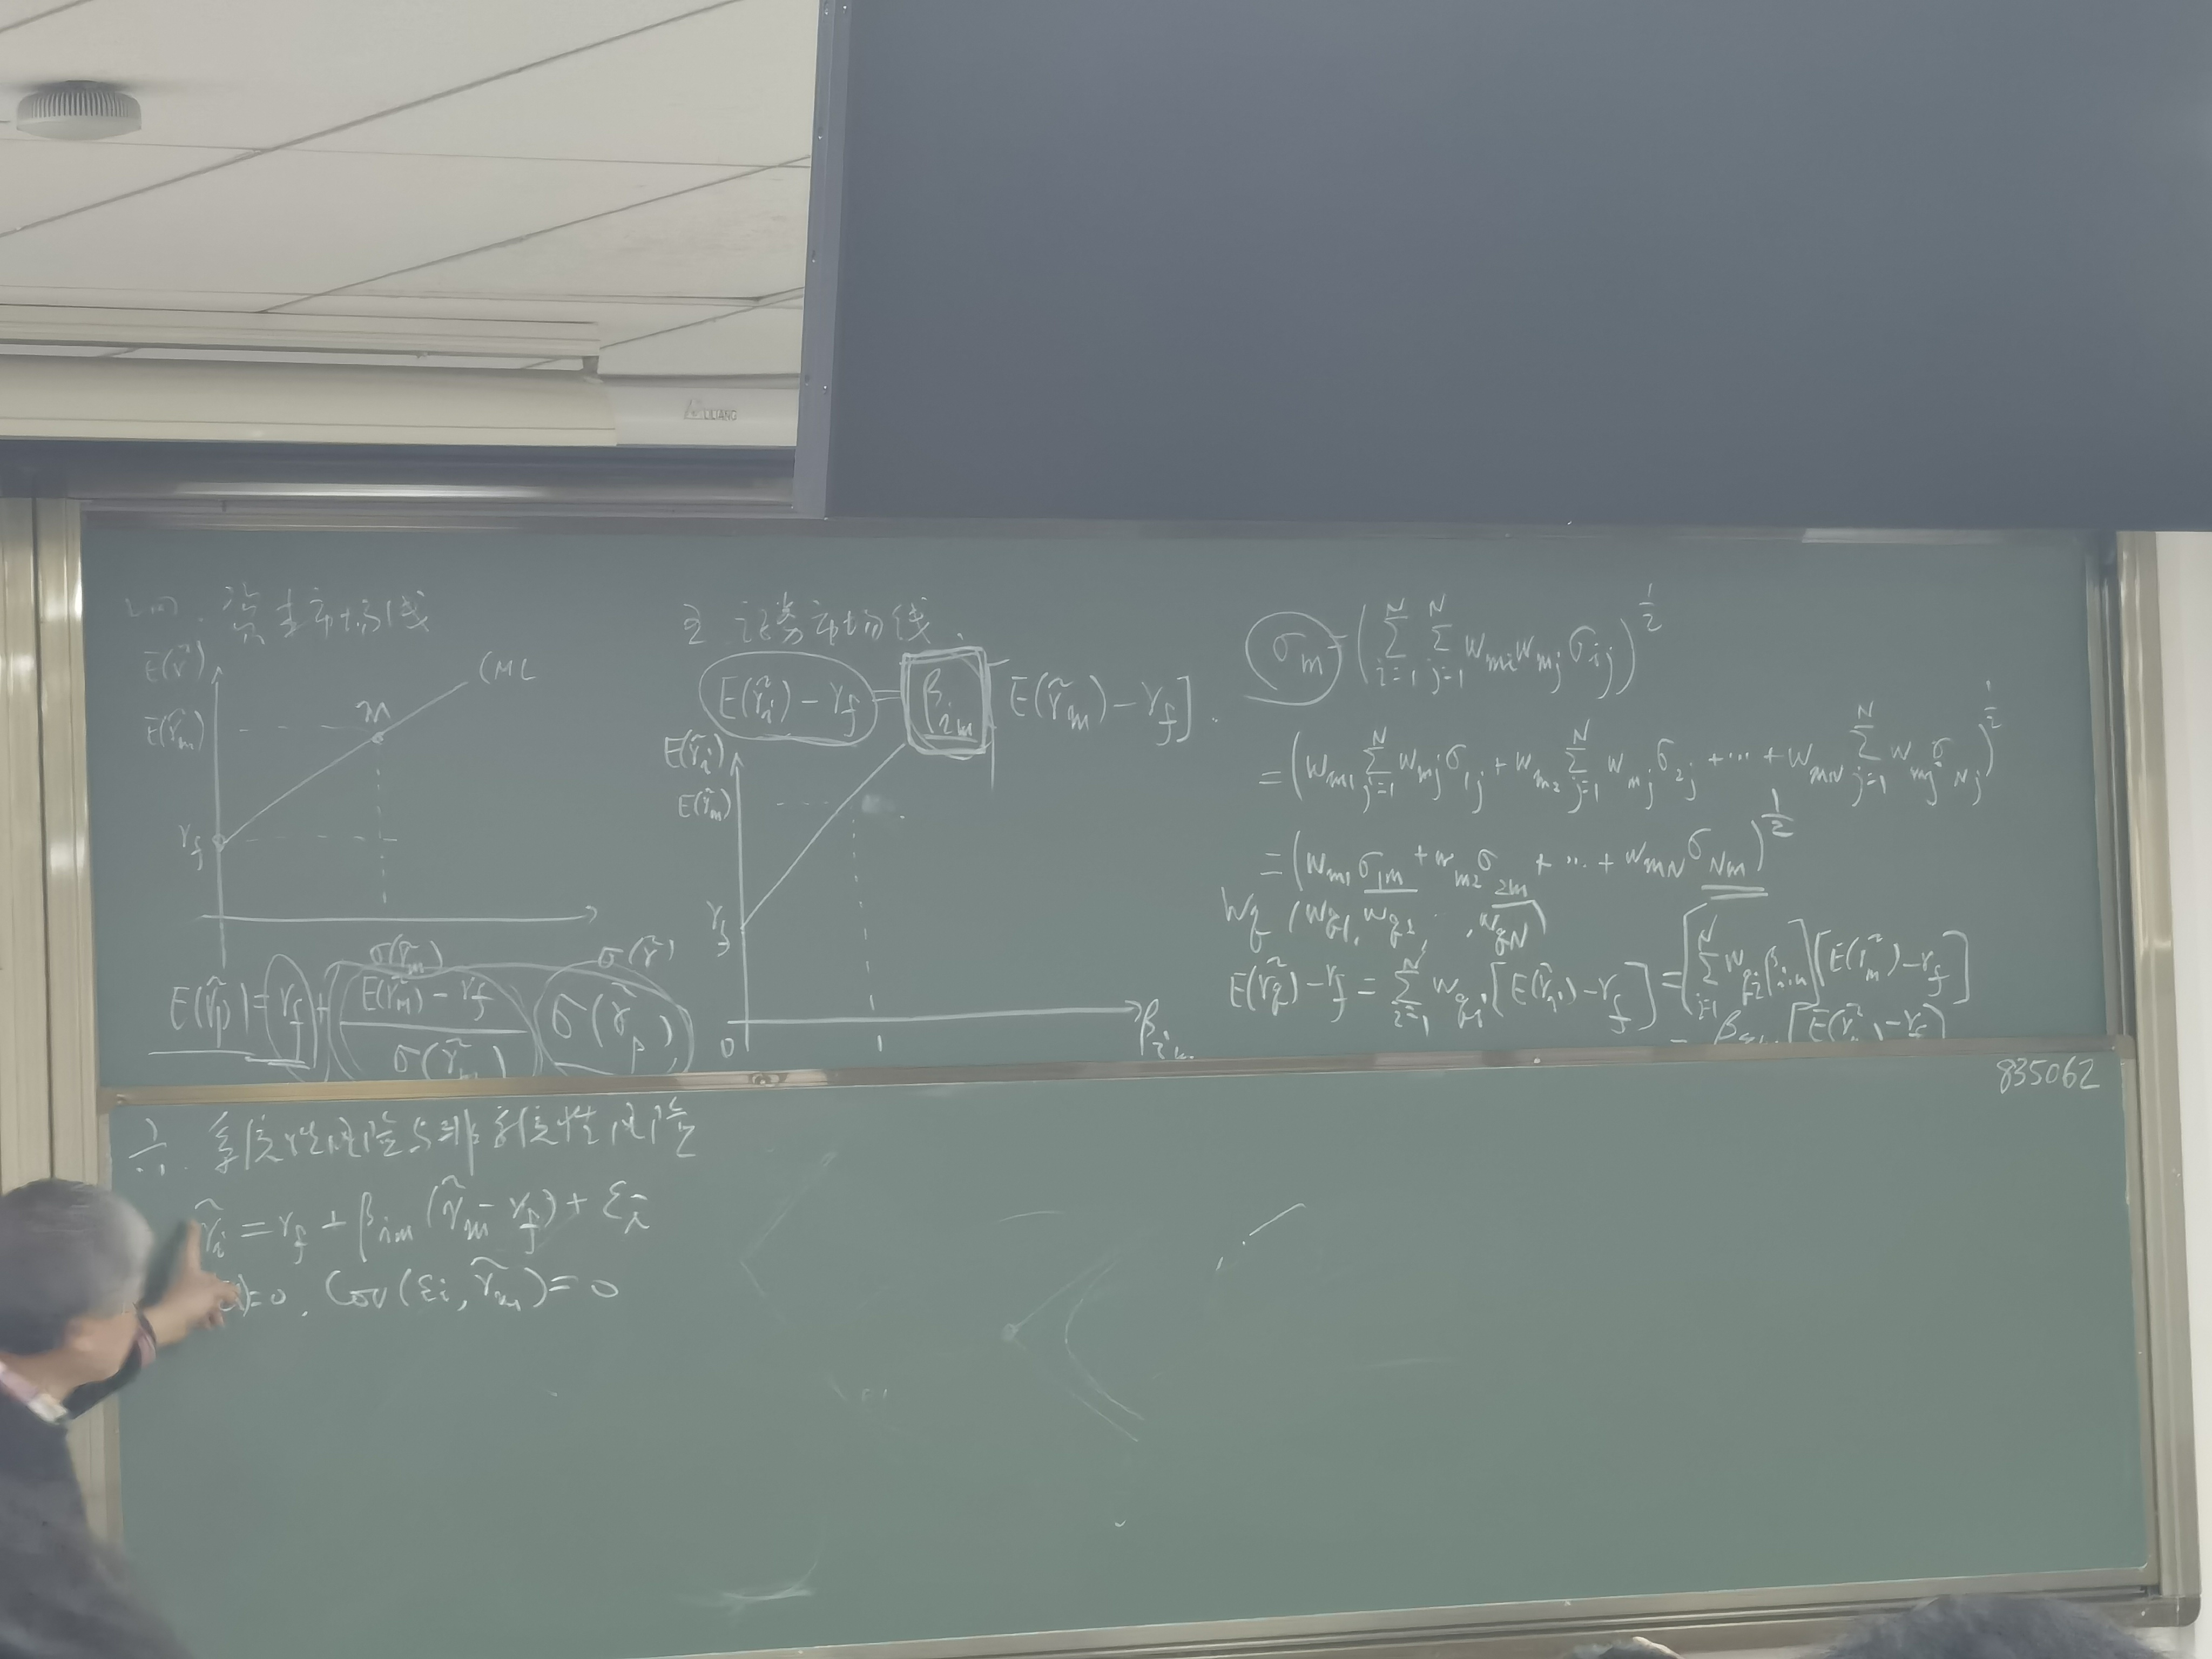 LILIANG
四. 资本市场线
E(r̃)
CML
E(r̃_m)
m
r_f
σ(r̃_m)
σ(r̃)
E(r̃_p) = r_f + (E(r̃_m) - r_f)/σ(r̃_m) σ(r̃_p)
五. 证券市场线
E(r̃_i) - r_f = β_im [E(r̃_m) - r_f].
E(r̃_i)
E(r̃_m)
r_f
0
1
β_im
σ_m = (∑_{i=1}^{N} ∑_{j=1}^{N} w_mi w_mj σ_ij)^{1/2}
= (w_m1 ∑_{j=1}^{N} w_mj σ_1j + w_m2 ∑_{j=1}^{N} w_mj σ_2j + ... + w_mN ∑_{j=1}^{N} w_mj σ_Nj)^{1/2}
= (w_m1 σ_1m + w_m2 σ_2m + ... + w_mN σ_Nm)^{1/2}
w_q (w_q1, w_q2, ..., w_qN)
E(r̃_q) - r_f = ∑_{i=1}^{N} w_qi [E(r̃_i) - r_f] = [∑_{i=1}^{N} w_qi β_im] [E(r̃_m) - r_f]
= β_qm [E(r̃_m) - r_f]
835062
六. 系统性风险与非系统性风险
r̃_i = r_f + β_im (r̃_m - r_f) + ε_i
)=0, Cov(ε_i, r̃_m) = 0